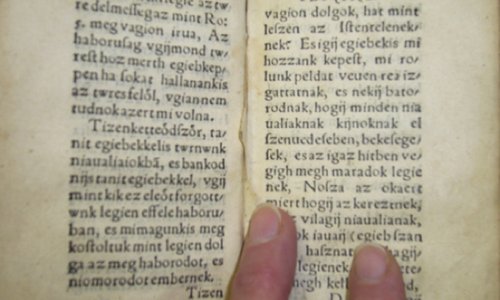 re delmessegaz mint Ro⸗
s. meg vagion irua, Az
haborusag vgijmond tw⸗
rest hoz merth egiebkep⸗
pen ha sokat hallanankis
az twresfelől, vgiannem
tudnokazert mi volna.
Tizenketteődszőr, ta⸗
nit egiebekkelis twrnwnk
niaualiaiokbā, es bankod
nijs tanit egiebekkel, vgij
mint kik ez eleőt forgott⸗
wnk legien effele haboru⸗
ban, es mimagunkis meg
kostoltuk mint legien dol
ga az meg haborodot, es
niomorodot embernek.
Tizen
vagion dolgok, hat mint
leszen az Istentelenek⸗
nek? Es igij egiebekis mi
hozzank kepest, mi ro⸗
lunk peldat veuen rea iz⸗
gattatnak, es nekij bato⸗
rodnak, hogij minden nia
ualiaknak kijnoknak el
szenuedeseben, bekesege⸗
sek, es az igaz hitben ve⸗
gigh megh maradok legie
nek, Nosza az okaert
miert hogij az kereztnek,
vilagij niaualianak,
iok iauaij (egieb szan
hasznu
legienek
De